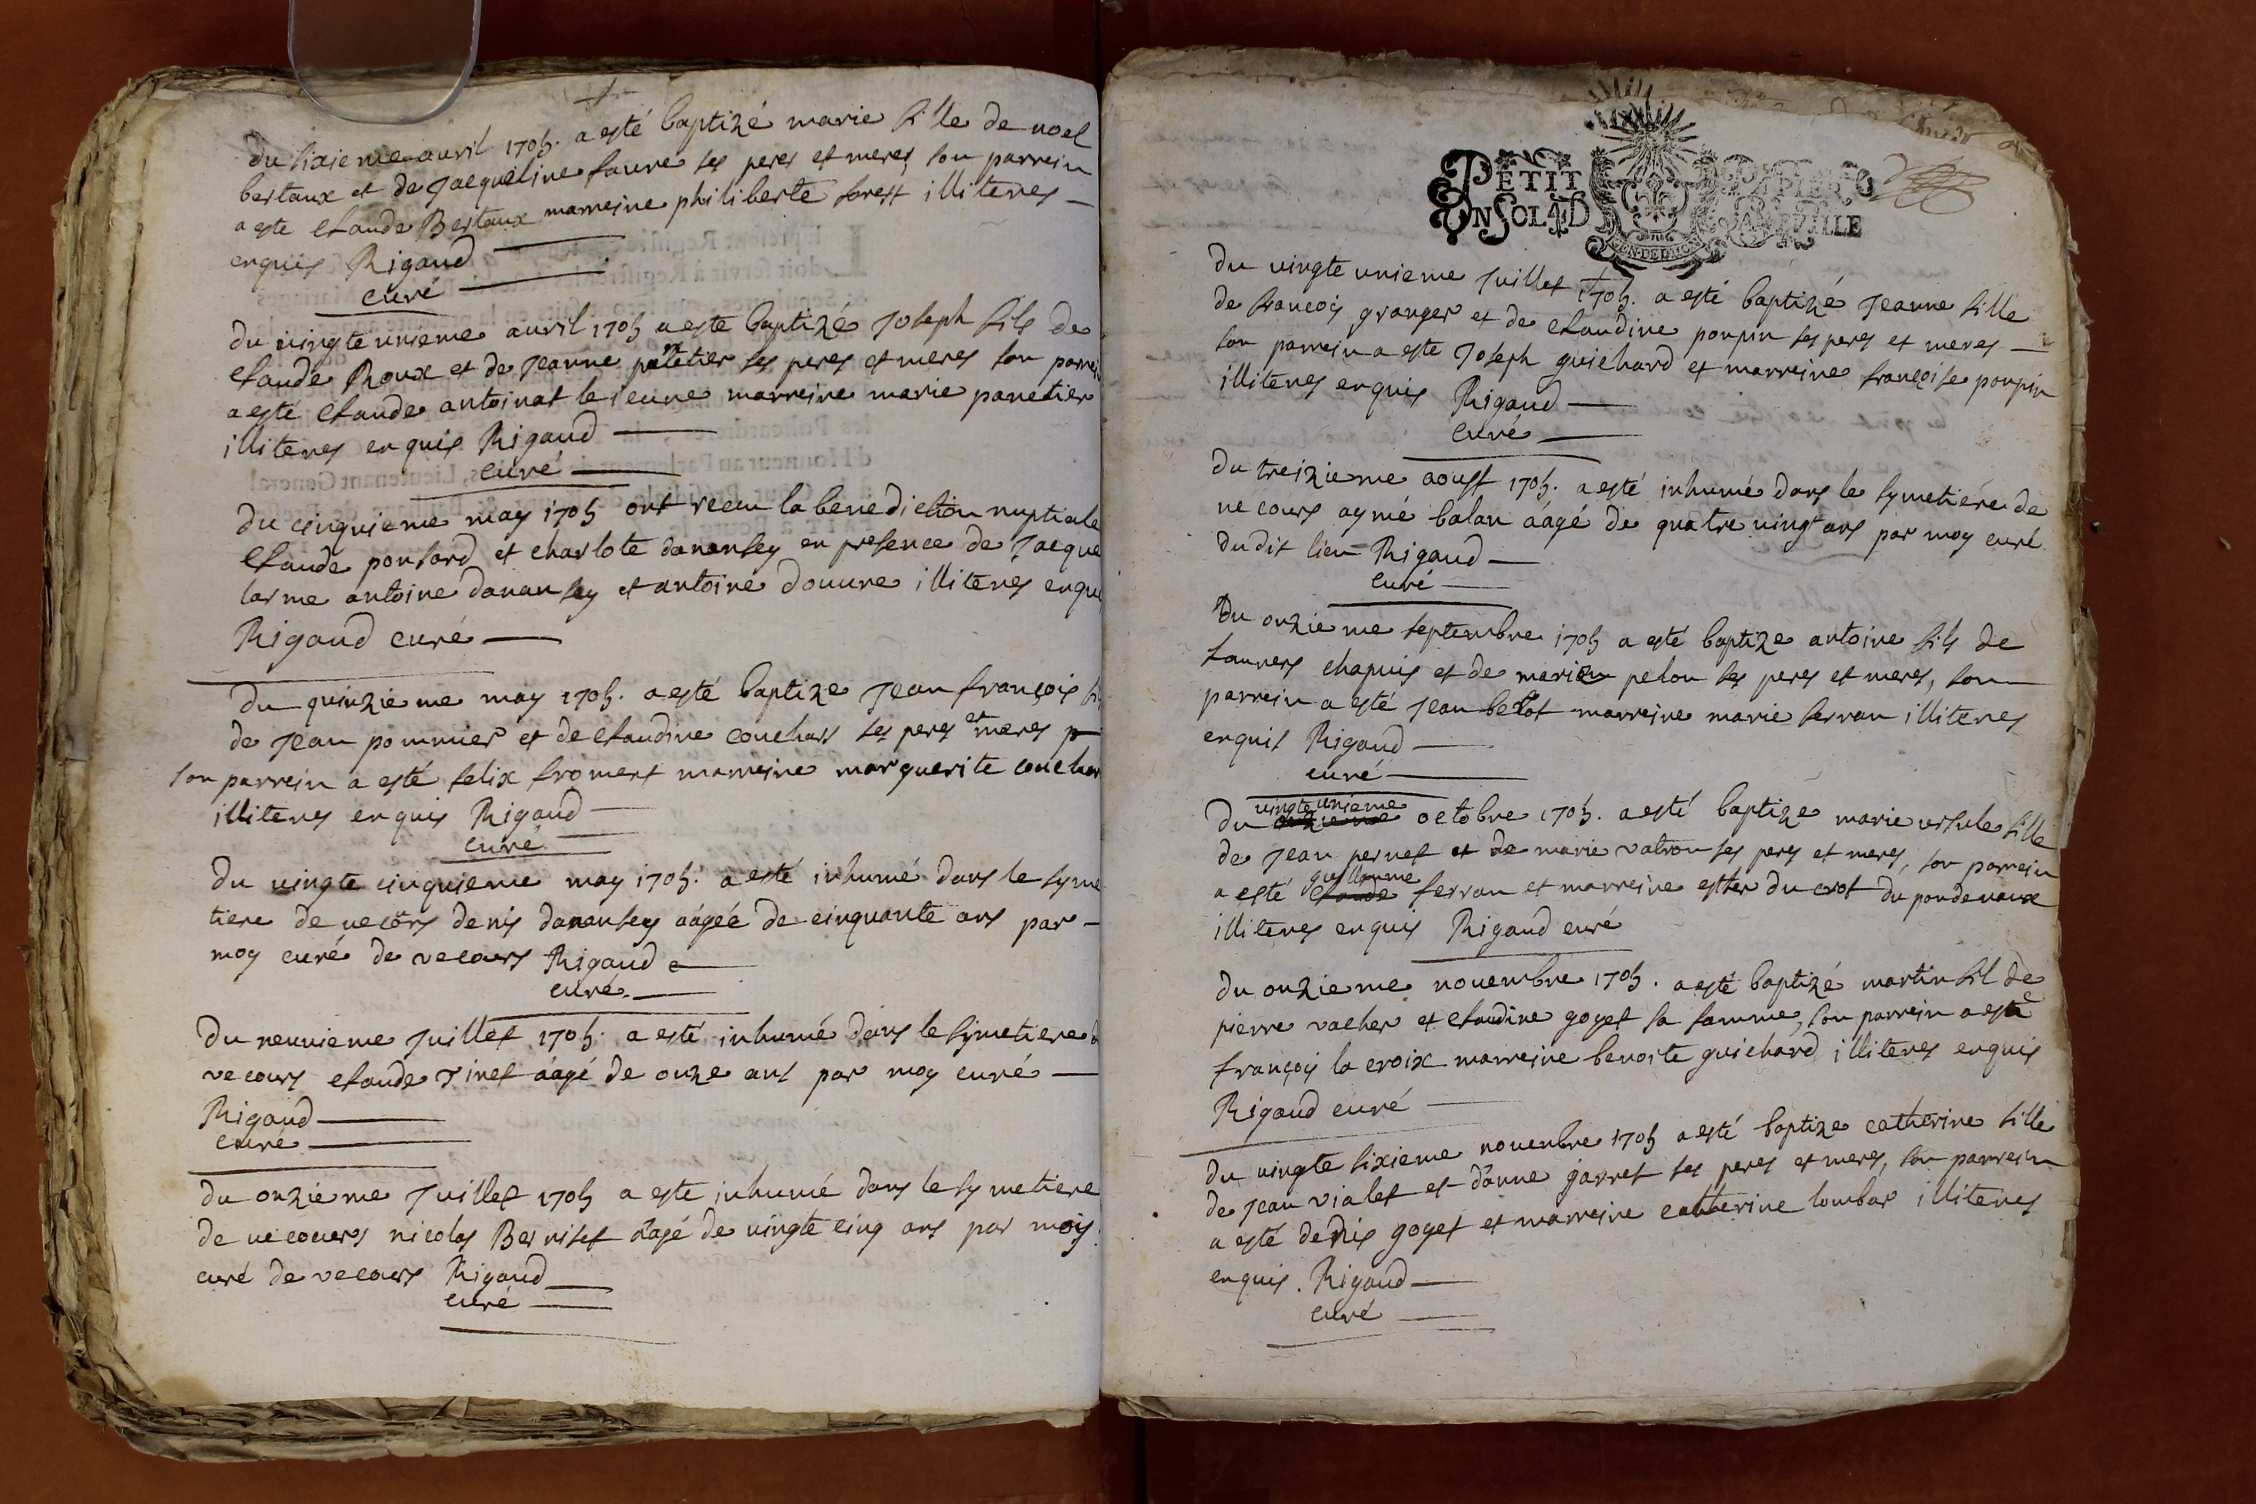 du sixieme avril 1705. a esté baptizé marie fille de noel
bertaux et de Jacqueline faure ses peres et meres son parrein
a este claude Bertaux marreine philiberte forest illiteres
enquis Rigaud
curé
du vingte unieme avril 1705 a esté baptizé Joseph fils de
claude Roux et de Jeanne ses peres et meres son parrein
a esté claude antoinat le jeune marreine marie panetier
illiteres enquis Rigaud
curé
du cinquieme may 1705 ont receu la benediction nuptiale
claude ponsard et charlote danansey en presence de Jacque
larme antoine danansey et antoine douure illiteres enquis
Rigaud curé
du quinzieme may 1705. a esté baptize Jean françois
de Jean pommier et de claudine couchars ses peres et meres
son parrein a esté felix froment marreine marguerite couchar
illiteres enquis Rigaud
curé
du vingte cinquieme may 1705. a esté inhumé dans le syme
tiere de vecors denis danansey aágée de cinquante ans par
moy curé de vecours Rigaud
curé
du neuvieme Juillet 1705. a esté inhumé dans le symetiere d
vecours claude Tinet aágé de onze ans par moy curé
Rigaud
curé
du onzieme Juillet 1705 a este inhumé dans le symetiere
de vecours nicolas Berniset aágé de vingte cinq ans par moy
curé de vecours Rigaud
curé
PETIT PAPIER
UN SOL 4 D LA FEVILLE
GEN. DE DIION
du vingte unieme Juillet 1705. a esté baptizé Jeanne fille
de francois granger et de claudine poupin ses peres et meres
son parrein a este Joseph guichard et marreine françoise poupin
illiteres enquis Rigaud
curé
du treizieme aoust 1705. a esté inhumé dans le symetiére de
vecours aymé balan aágé de quatre vingt ans par moy curé
dudit lieu Rigaud
curé
du onzieme septembre 1705 a esté baptize antoine fils de
laurens chapuis et de pelon ses peres et meres, son
parrein a esté Jean belot marreine marie ferran illiteres
enquis Rigaud
curé
du vingte unieme octobre 1705. a esté baptize marie ursule fille
de Jean pernet et de marie vatron ses peres et meres, son parrein
a esté guillaume ferran et marreine esther du crot du pondevaux
illiteres enquis Rigaud curé
du onzieme novembre 1705. a esté baptizé martin fil de
pierre vacher et claudine goyet sa famme, son parrein a esté
françois la croix marreine benoite guichard illiteres enquis
Rigaud curé
du vingte sixieme novenbre 1705 a esté baptize catherine fille
de Jean vialet et d'anne garret ses peres et meres, son parrein
a esté denis goyet et marreine catherine lombar illiteres
enquis. Rigaud
curé